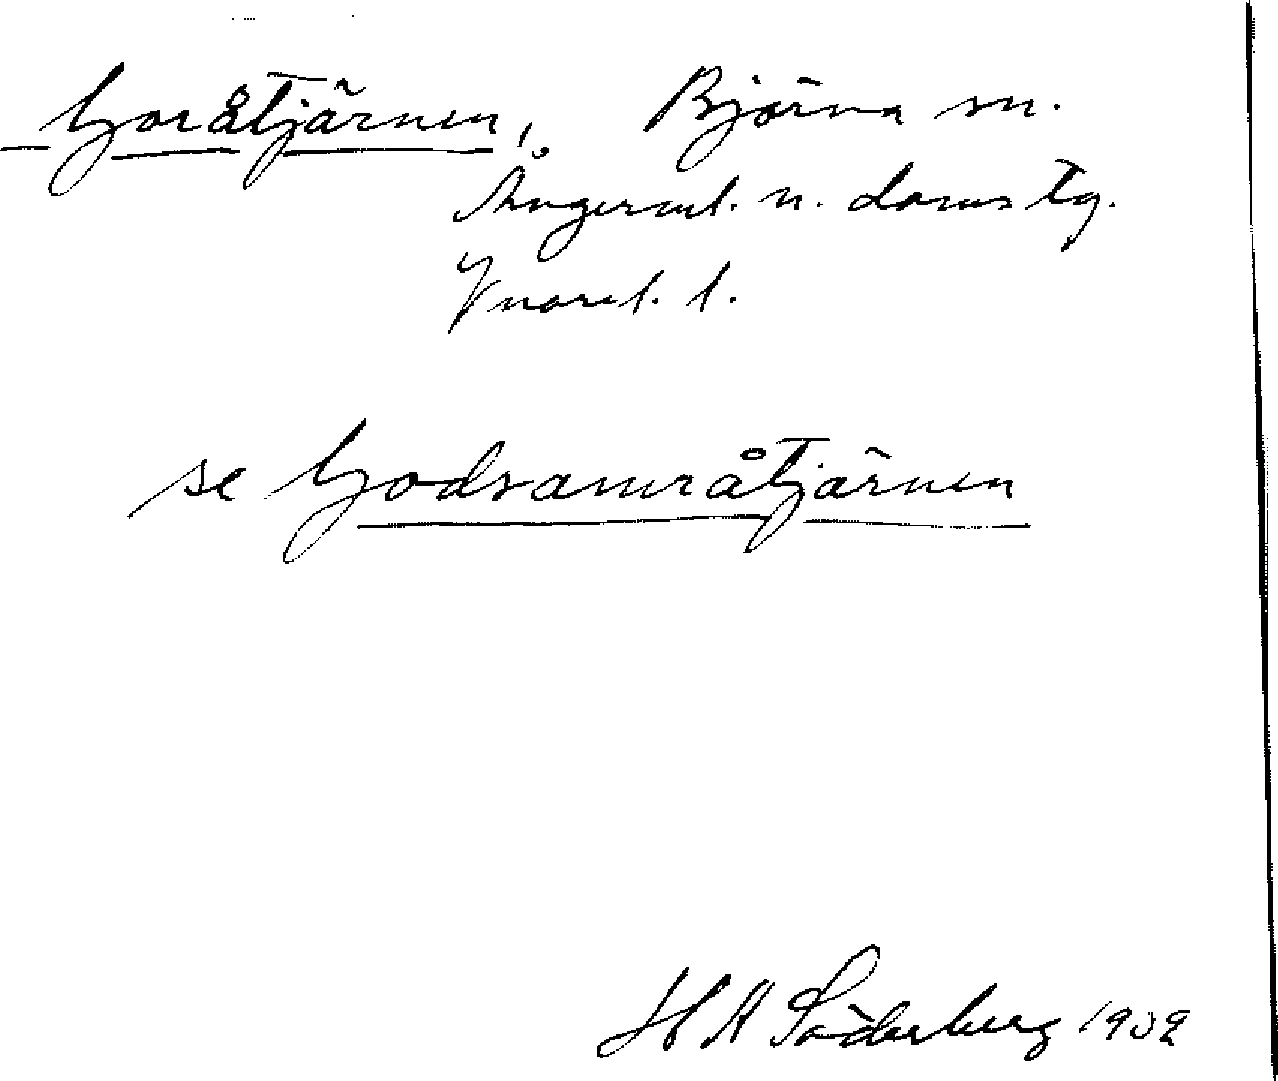 Goråtjärnen, Björna sn.
Ångerml. n. domstg.
Vnorrl. l.
se Godsamråtjärnen
H A Söderberg 1932